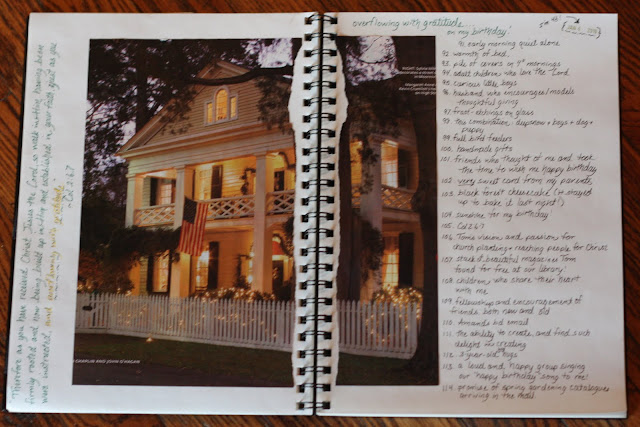 Therefore as you have received Christ Jesus the Lord, so walk in Him, having been
firmly rooted and now being built up in Him and established in your faith, just as you
were instructed, and overflowing with gratitude.
~Col. 2:6-7
overflowing with gratitude
on my birthday!
91. early morning quiet alone
92. warmth of bed
93. pile of covers on 9° mornings
94. adult children who love the Lord
95. curious little boys
96. husband who encourages/models
thoughtful giving
97. frost-etchings on glass
98. tea
99. full bird feeders
100. handmade gifts
101. friends who thought of me and took
the time to wish me happy birthday
102. very sweet card from my parents
103. black forest cheesecake (I stayed
up to bake it last night!)
104. sunshine for my birthday
105. Col 2:6-7
106. Tom's vision and passion for
church planting + reaching people for Christ
107. stack of beautiful magazines Tom
found for free at our library!
108. children who share their heart
with me
109. fellowship and encouragement of
friends both new and old
110. Amanda's bd email
111. the ability to create, and find such
delight in creating
112. 3-year-old hugs
113. a loud and happy group singing
our "happy birthday" song to me!
114. promise of spring gardening catalogues
arriving in the mail.